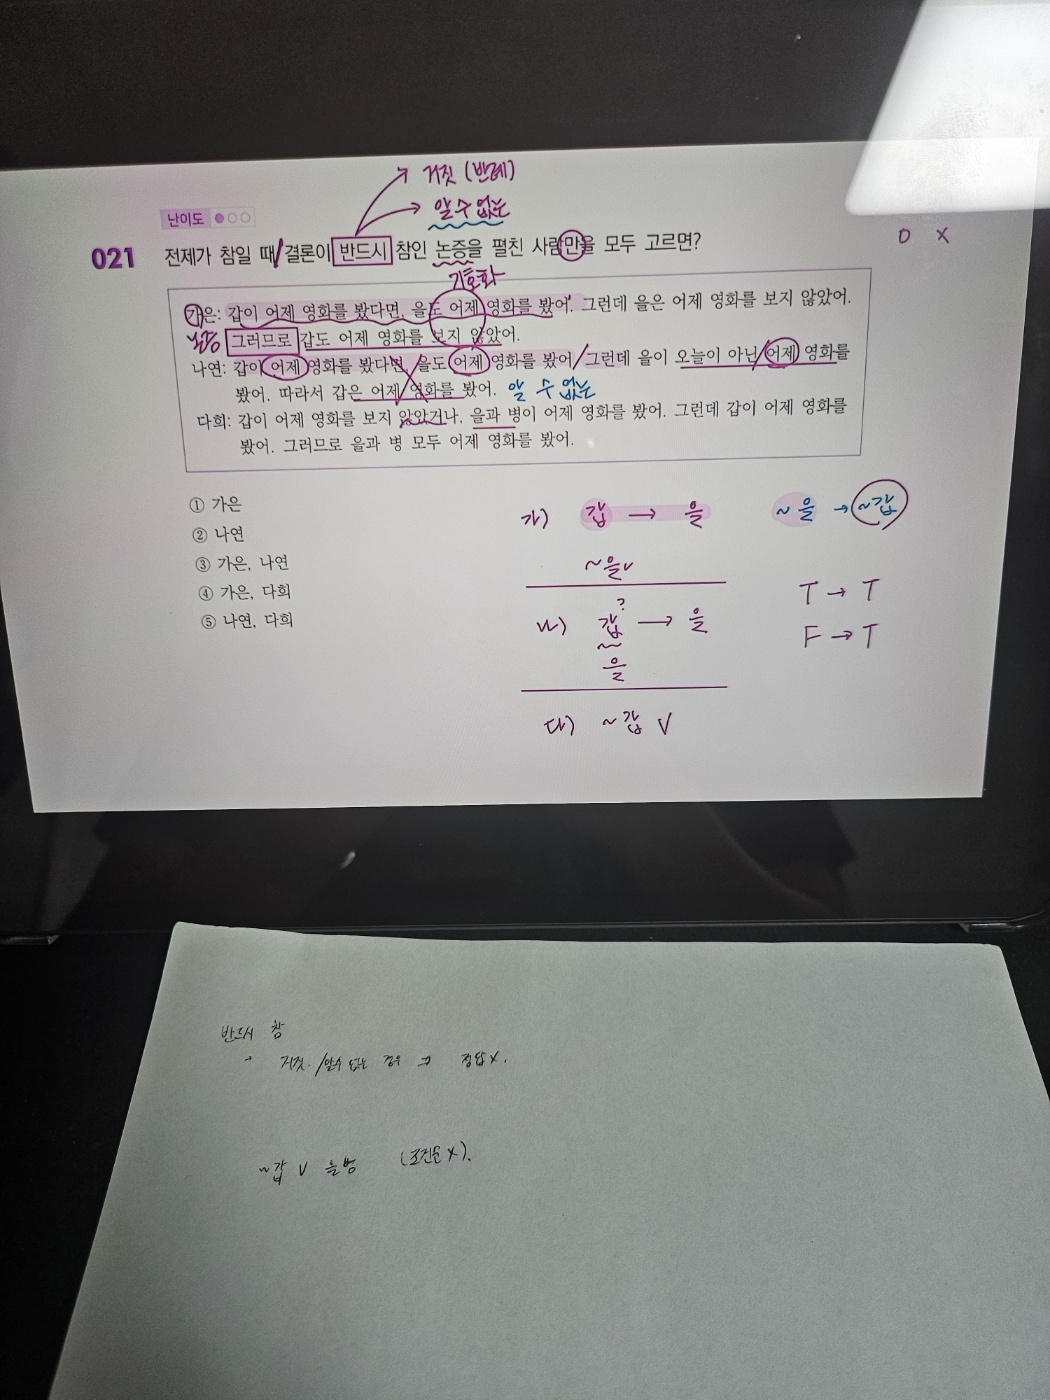 거짓 (반례)
알 수 없는
난이도
021 전제가 참일 때/결론이 반드시 참인 논증을 펼친 사람만을 모두 고르면?
O X
기호화
가은: 갑이 어제 영화를 봤다면, 을도 어제 영화를 봤어. 그런데 을은 어제 영화를 보지 않았어.
논증 그러므로 갑도 어제 영화를 보지 않았어.
나연: 갑이 어제 영화를 봤다면, 을도 어제 영화를 봤어/그런데 을이 오늘이 아닌/어제 영화를
봤어. 따라서 갑은 어제 영화를 봤어. 알 수 없는
다희: 갑이 어제 영화를 보지 않았거나, 을과 병이 어제 영화를 봤어. 그런데 갑이 어제 영화를
봤어. 그러므로 을과 병 모두 어제 영화를 봤어.
① 가은
② 나연
③ 가은, 나연
④ 가은, 다희
⑤ 나연, 다희
가) 갑 → 을 ~을 → ~갑
~을
T → T
?
나) 갑 → 을
F → T
을
다) ~갑 V
반드시 참
→ 거짓 /알수 없는 경우 → 정답X.
~갑 V 을병 (조건문X).